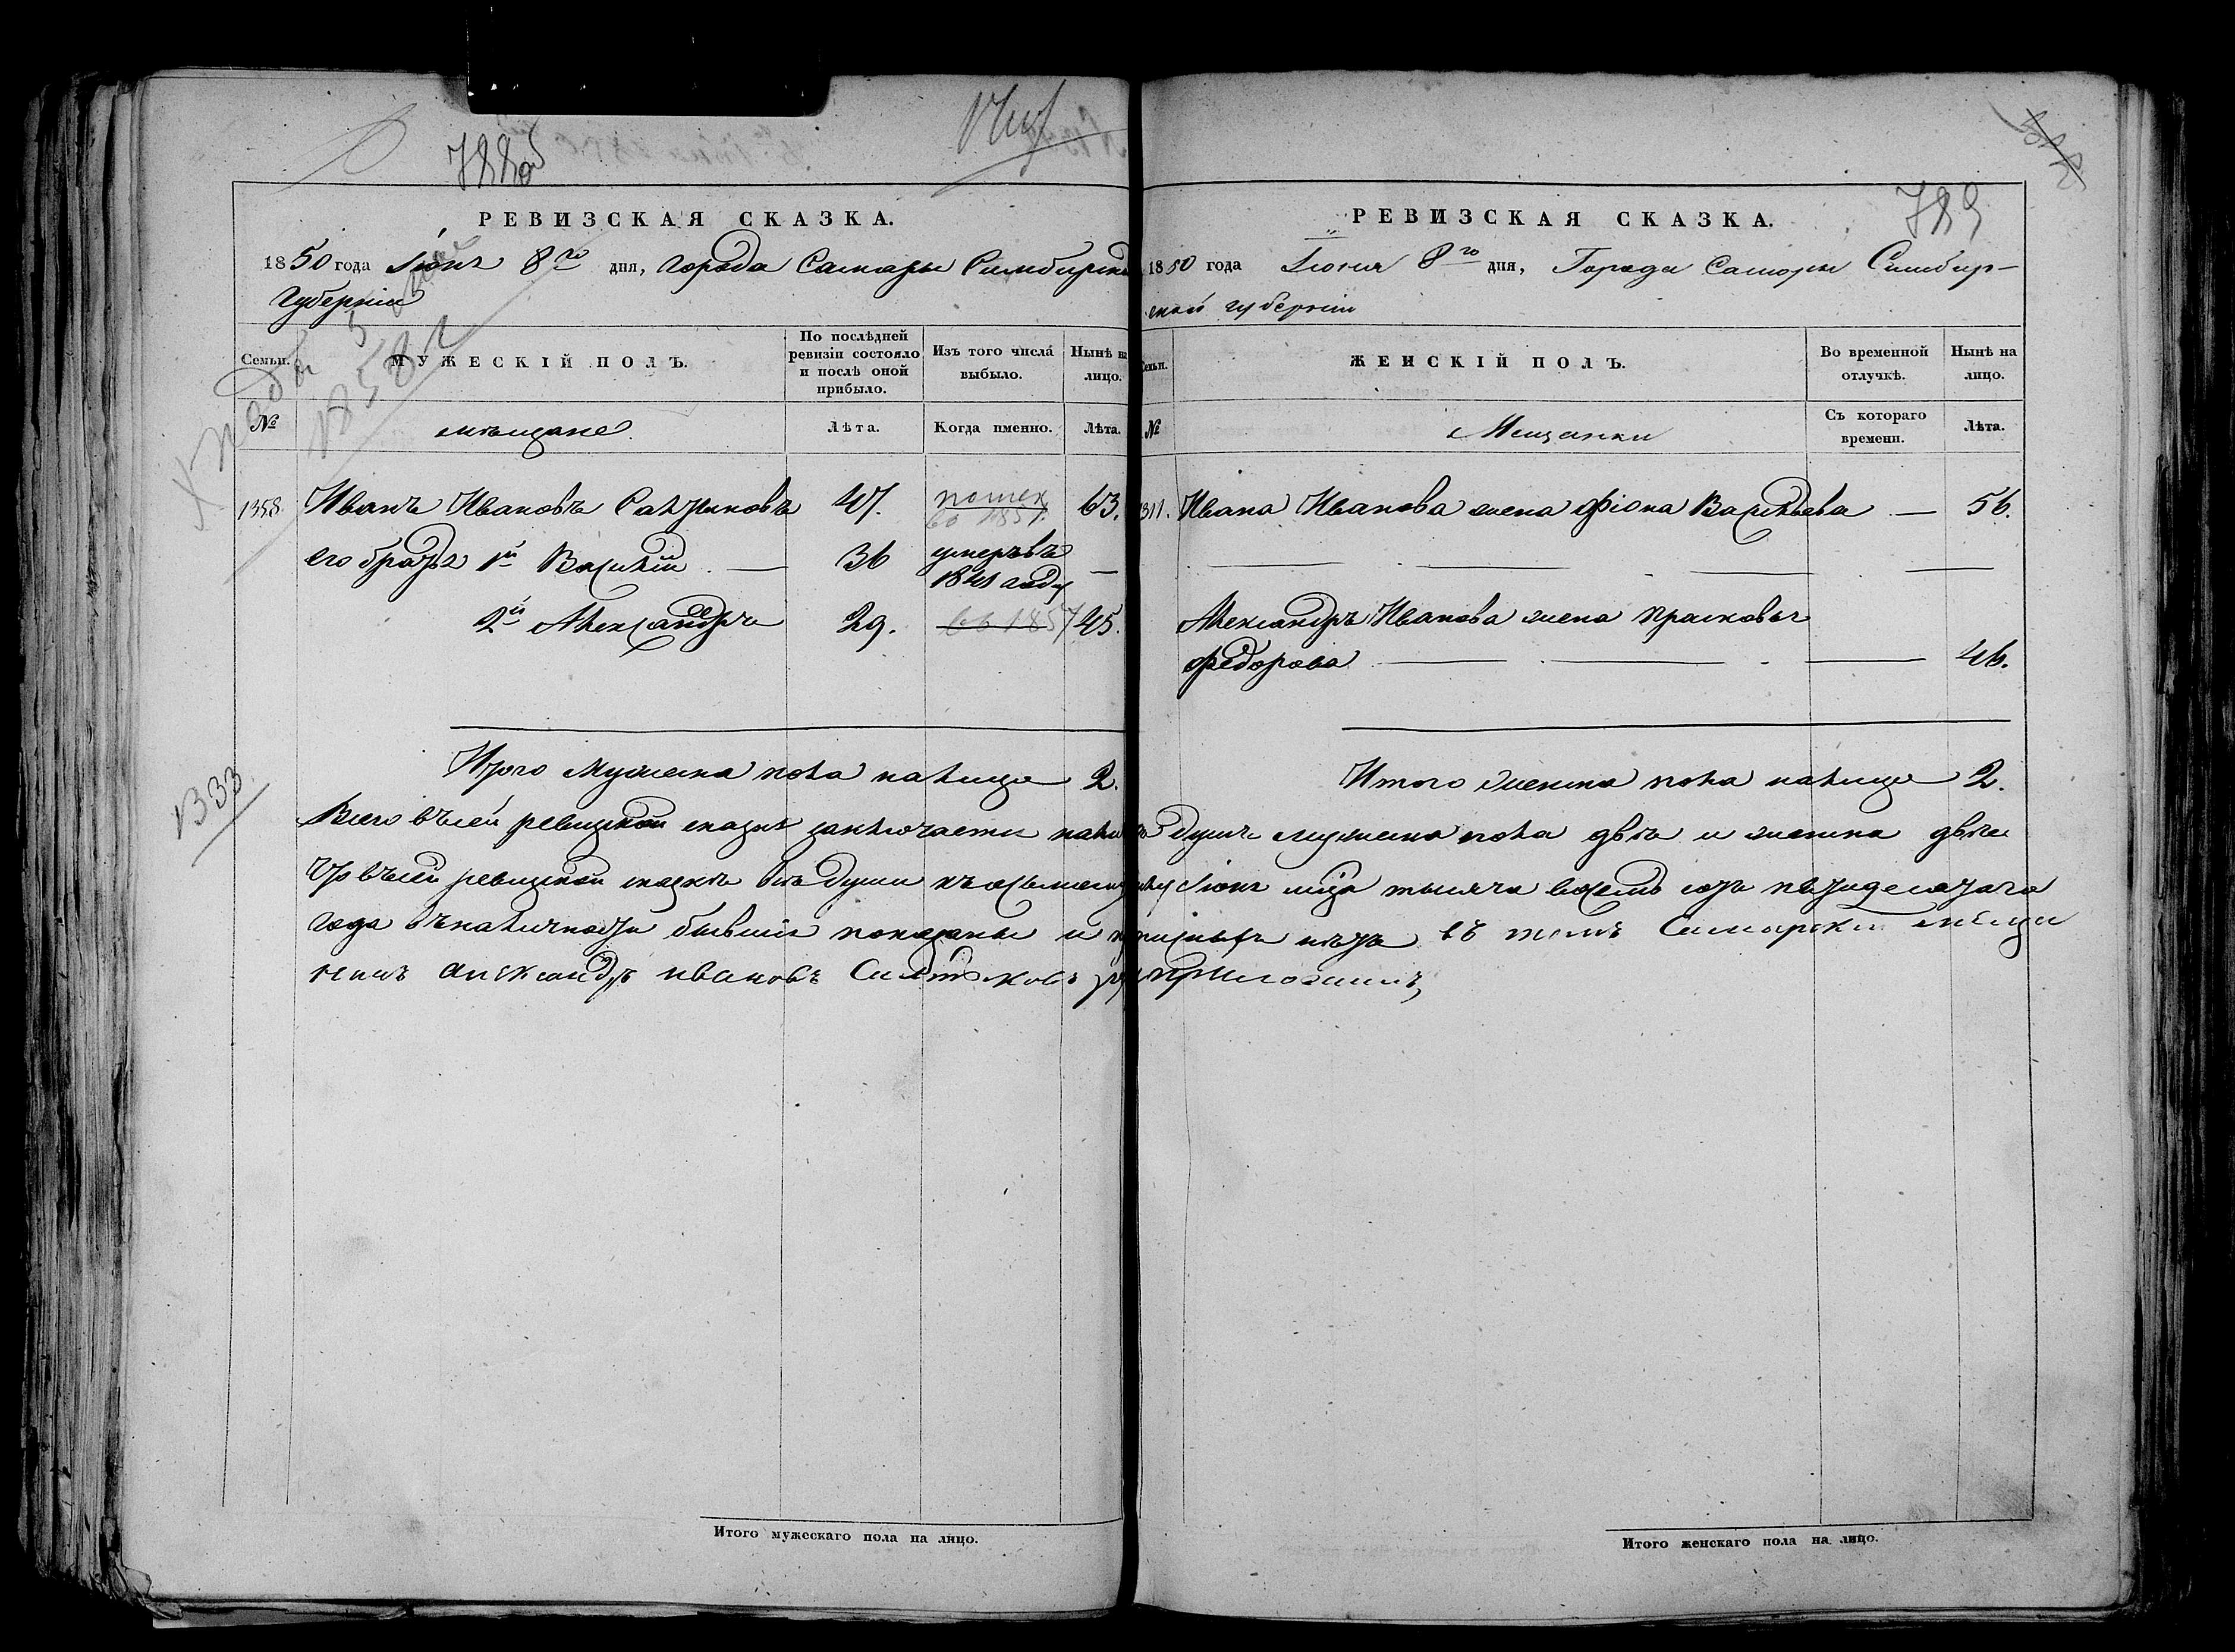 788об
РЕВИЗСКАЯ СКАЗКА.
1850 года Іюня 8го дня, города Самары Симбирской
Губерніи
Семьи.
МУЖЕСКІЙ ПОЛЪ.
По послѣдней ревизіи состояло и послѣ оной прибыло.
Изъ того числа выбыло.
Нынѣ на лицо.
№
мѣщане.
Лѣта.
Когда именно.
Лѣта.
1358. Иванъ Ивановъ 47. 63.
его братья 1й Василій — 36 умеръ въ 1841 году —
2й Александръ 29. 1857 45.
Итого мужеска пола налицо 2.
1333
789
РЕВИЗСКАЯ СКАЗКА.
1850 года Іюня 8го дня, Города Самары Симбир-
ской губерніи
Семьи.
ЖЕНСКІЙ ПОЛЪ.
Во временной отлучкѣ.
Нынѣ на лицо.
№
Мещанки
Съ котораго времени.
Лѣта.
Ивана Иванова жена Фіона Васильева — 56.
Александръ Иванова жена Прасковья
Федорова 46.
Итого женска пола налицо 2.
Всего въ сей ревизкой сказке заключается налицо душъ мужеска пола двѣ и женска двѣ
Что въ сей ревизкой сказкѣ всѣ души къ осьмому числу Іюня мца тысяча восемь сотъ пятидесятаго
года въ наличности бывшіе показаны и прописныхъ нѣтъ въ томъ Самарскій мѣща
нинъ Александръ Ивановъ руку приложилъ,
Итого мужескаго пола на лицо.
Итого женскаго пола на лицо.